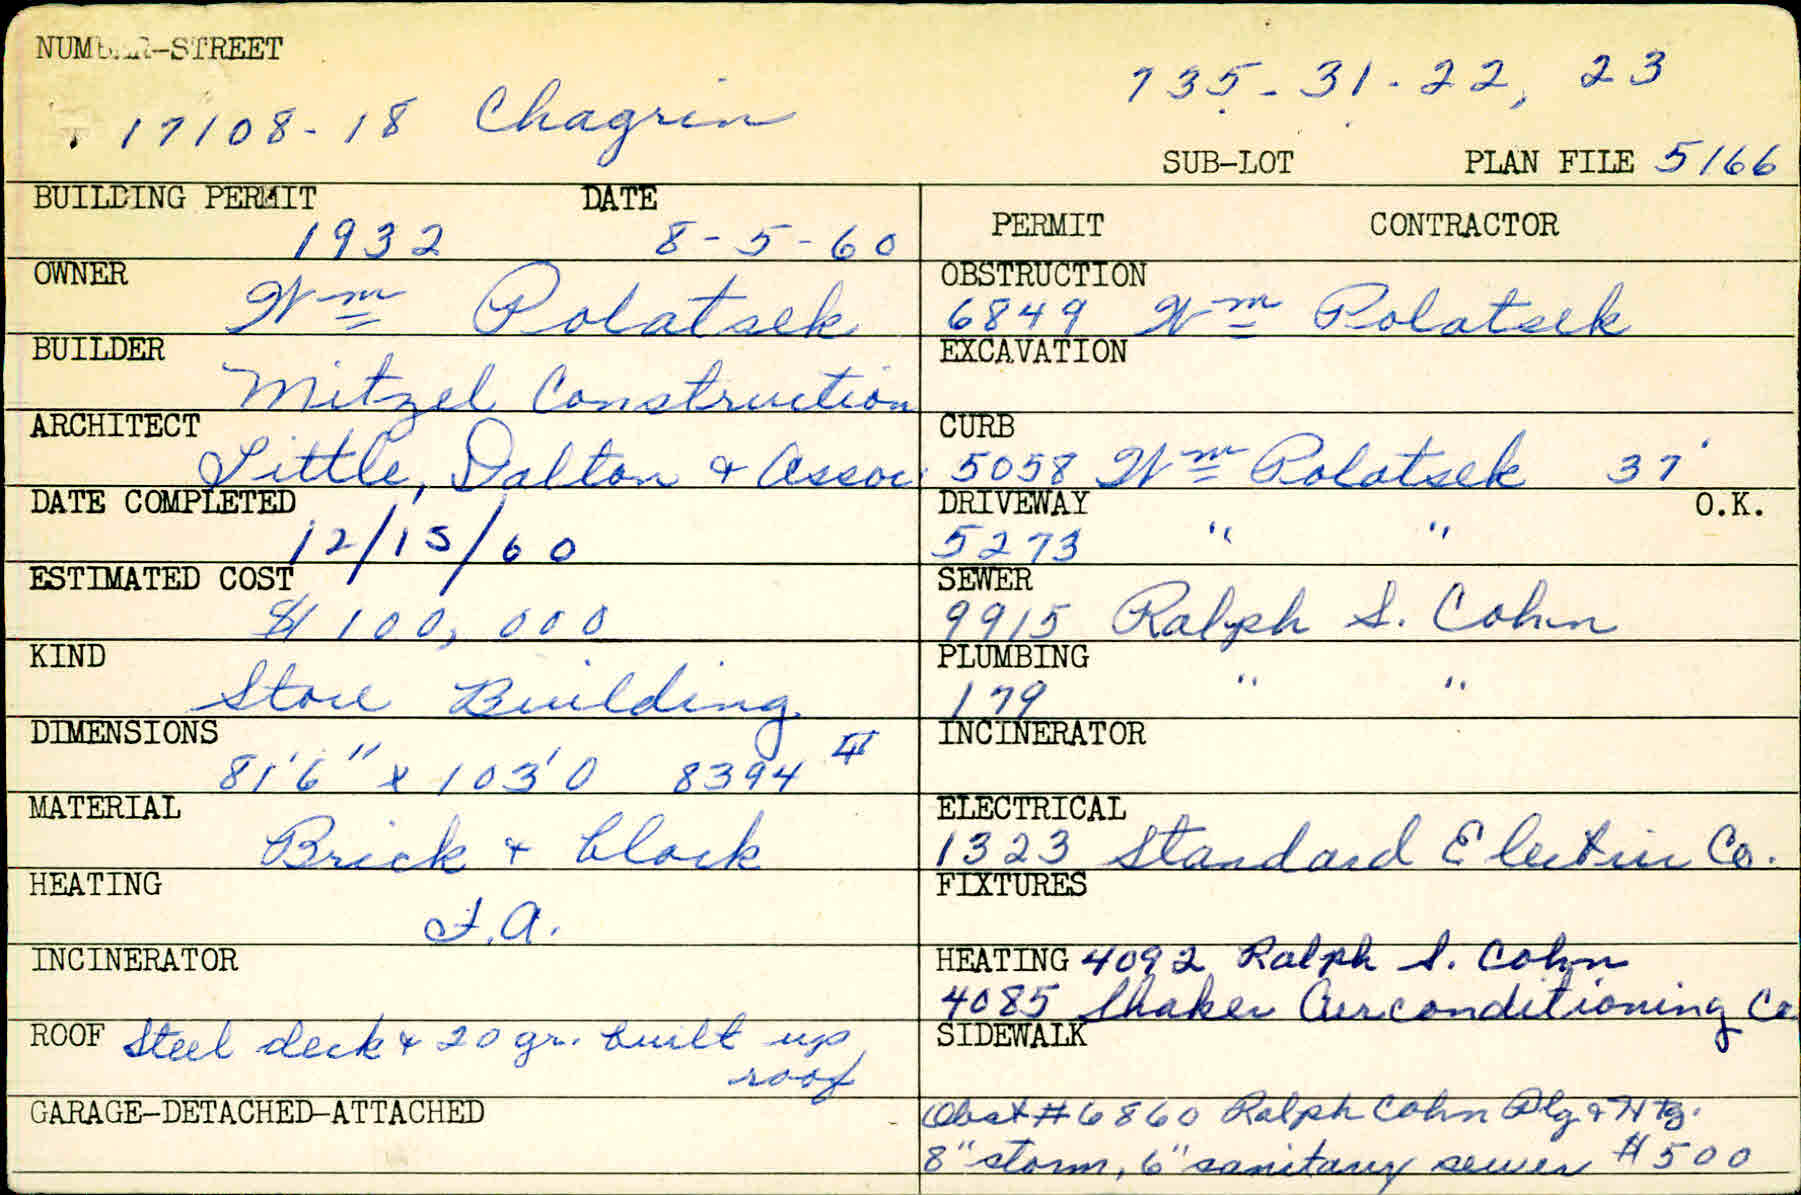 NUMBER-STREET
17108-18 Chagrin
735-31-22, 23
SUB-LOT PLAN FILE 5166
BUILDING PERMIT DATE
1932 8-5-60
OWNER
Wm Polatsek
BUILDER
Mitzel Construction
ARCHITECT
Little, Dalton & Assoc
DATE COMPLETED
12/15/60
ESTIMATED COST
$100,000
KIND
Store Building
DIMENSIONS
81'6" x 103'0 8394
MATERIAL
Brick + block
HEATING
F.A.
INCINERATOR
ROOF Steel deck & 20 gr. built up
roof
GARAGE-DETACHED-ATTACHED
PERMIT CONTRACTOR
OBSTRUCTION
6849 Wm Polatsek
EXCAVATION
CURB
5058 Wm Polatsek 37'
DRIVEWAY O.K.
5273 " "
SEWER
9915 Ralph S. Cohn
PLUMBING
179 " "
INCINERATOR
ELECTRICAL
1323 Standard Electric Co.
FIXTURES
HEATING 4092 Ralph S. Cohn
4085 Shaker Airconditioning Co
SIDEWALK
Obst #6860 Ralph Cohn Plg & Htg.
8" storm, 6" sanitary sewer $500